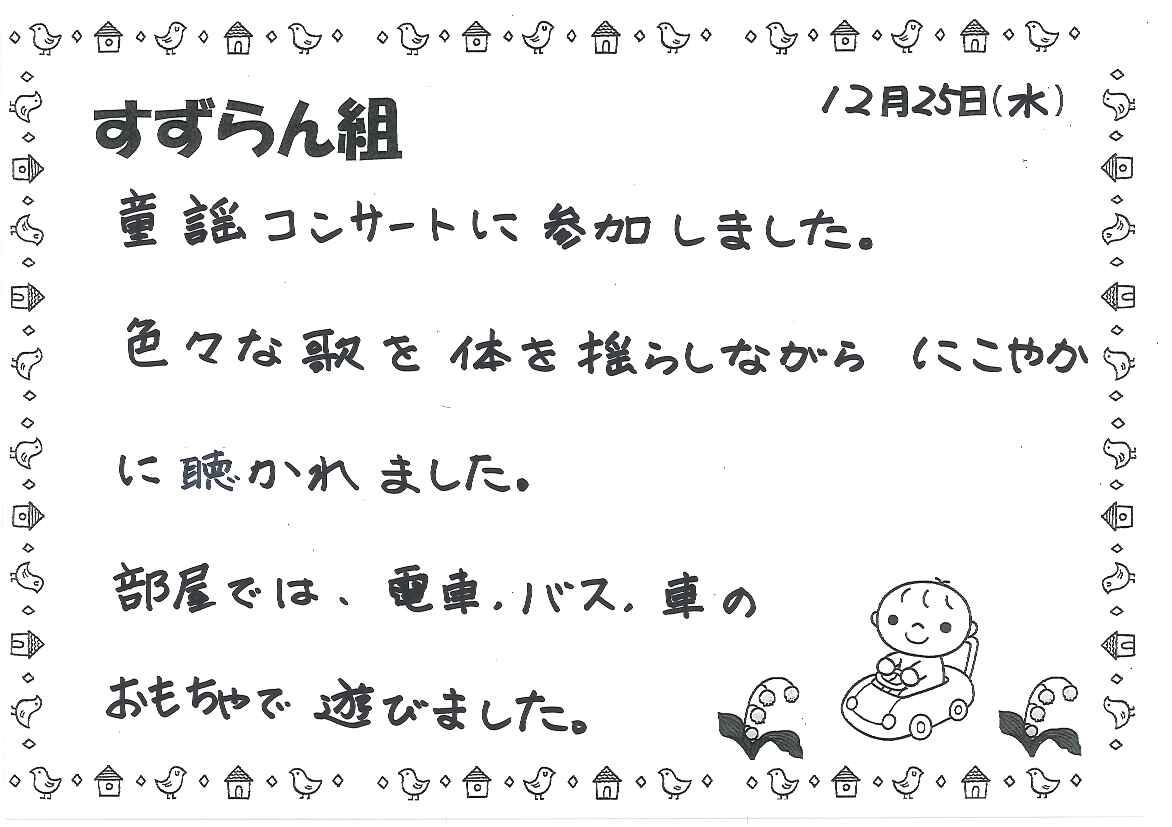 すずらん組
12月25日(水)
童謡コンサートに参加しました。
色々な歌を体を揺らしながら にこやか
に聴かれました。
部屋では、電車、バス、車の
おもちゃで遊びました。